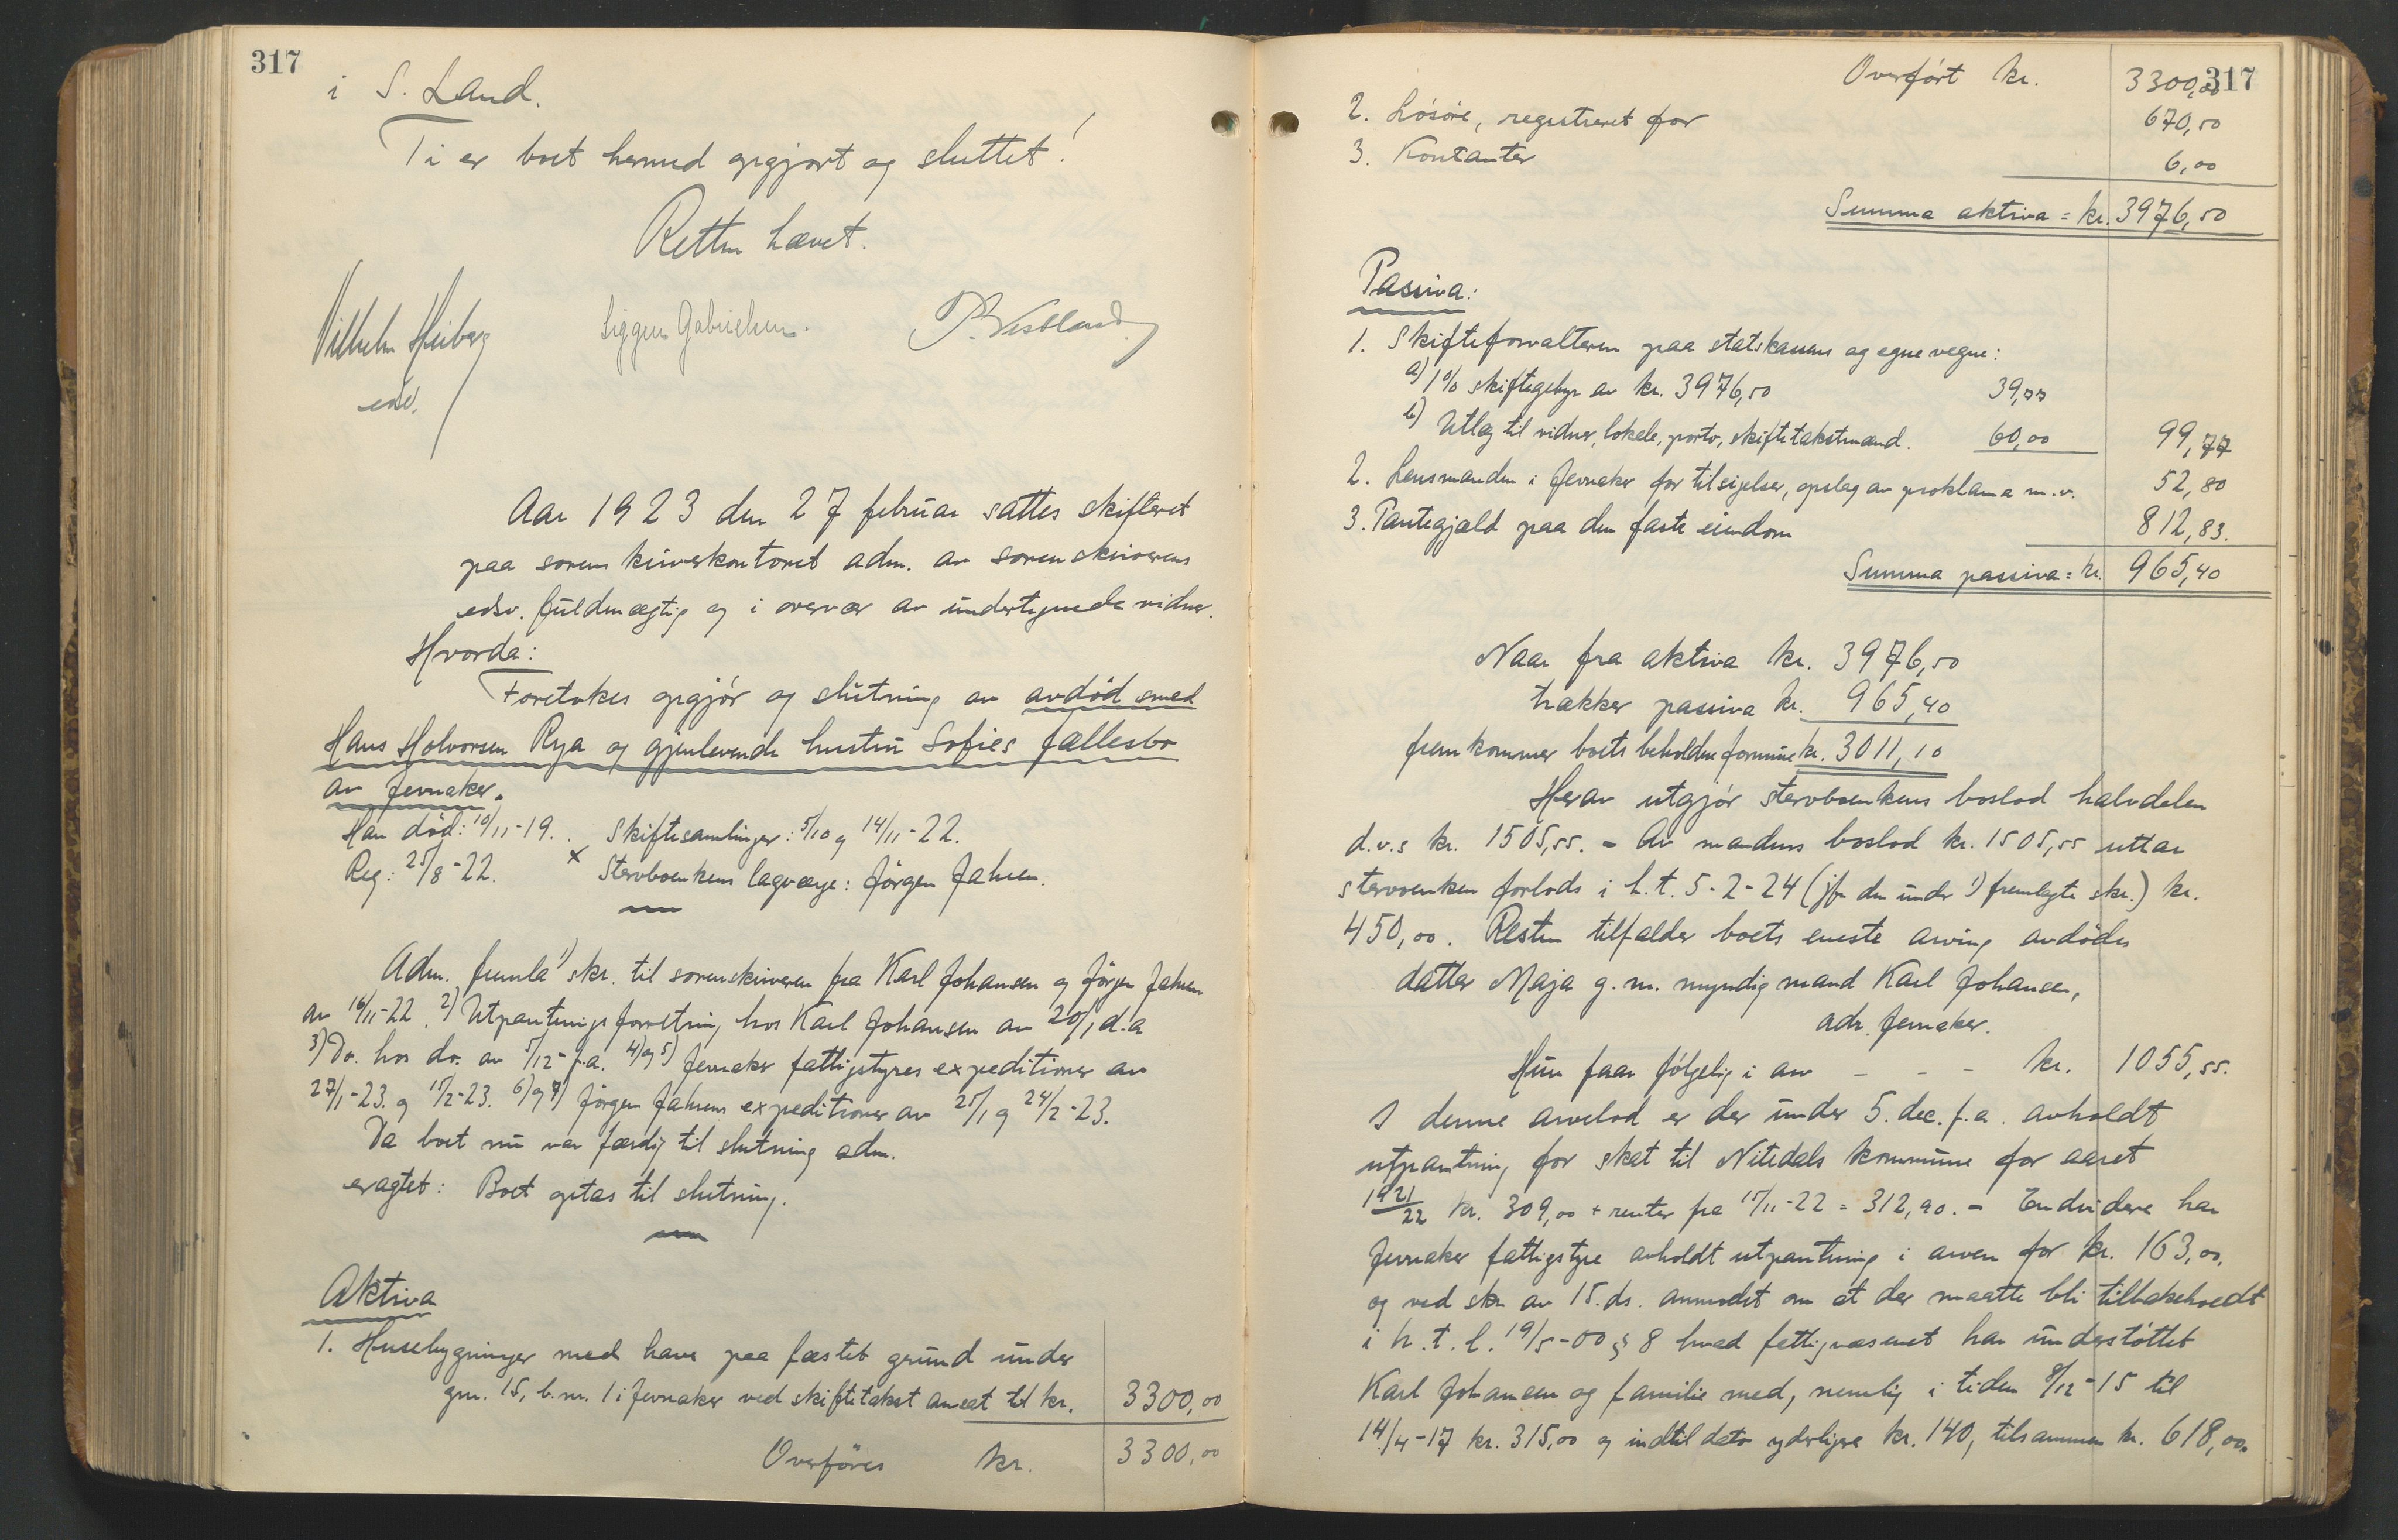 317
i S. Land.
Ti er boet hermed opgjort og sluttet!
Retten hævet.
Vilhelm Heiberg
edsv.
Siggen Gabrielsen.
P. Vestland
Aar 1923 den 27 februar sattes skifteret
paa sorenskriverkontoret adm. av sorenskriverens
edsv. fuldmægtig og i overvær av undertegnede vidner.
Hvorda:
Foretokes opgjør og slutning av avdød smed
Hans Halvorsen Rya og gjenlevende hustru Sofies fællesbo
av Jevnaker.
Han død: 10/11-19. Skiftesamlinger: 5/10 og 14/11-22.
Reg: 25/8-22. x Stervboenkens lagværge: Jørgen Jahren.
Adm. fremla 1) skr. til sorenskriveren fra Karl Johansen og Jørgen Jahren
av 16/11-22. 2) Utpantningsforretning hos Karl Johansen av 20/1 d.a.
3) Do. hos do. av 5/12- f.a. 4) og 5) Jevnaker fattigstyres expeditioner av
27/1-23. og 15/2-23. 6) og 7) Jørgen Jahrens expeditioner av 25/1 og 24/2-23.
Da boet nu var færdig til slutning adm.
eragtet: Boet optas til slutning.
Aktiva
1. Husebygninger med have paa fæstet grund under
gm. 15, b.nr. 1 i Jevnaker ved skiftetakst ansat til kr. 3300,00
Overføres kr. 3300,00
317
Overført kr. 3300,00
2. Løsøre, registreret for 670,50
3. Kontanter 6,00
Summa aktiva = kr. 3976,50
Passiva:
1. Skifteforvalteren paa statskassens og egne vegne:
a) 1% skiftegebyr av kr. 3976,50 39,77
b) Utlæg til vidner, lokale, porto, skiftetakstmænd. 60,00 99,77
2. Lensmanden i Jevnaker for tilsigelser, opslag av proklama m.v. 52,80
3. Pantegjæld paa den faste eiendom 812,83.
Summa passiva = kr. 965,40
Naar fra aktiva kr. 3976,50
trækker passiva kr. 965,40
fremkommer boets beholdne formue kr. 3011,10
Herav utgjør stervboenkens boslod halvdelen
d.v.s kr. 1505,55. - Av mandens boslod kr. 1505,55 uttar
stervoenken forlods i h.t. 5-2-24 (jfr den under 1) fremlagte skr.) kr.
450,00. Resten tilfalder boets eneste arving avdødes
datter Maja g.m. myndig mand Karl Johansen,
adr. Jevnaker.
Hun faar følgelig i arv - - - kr. 1055,55.
I denne arvelod er der under 5. dec. f.a. avholdt
utpantning for skat til Nitedals kommune for aaret
1921/22 kr. 309,00 + renter fra 15/11-22 = 312,90. - Endvidere har
Jevnaker fattigstyre avholdt utpantning i arven for kr. 163,00,
og ved skr. av 15. ds. anmodet om at der maatte bli tilbakeholdt
i h.t. l. 19/5-00 § 8 hvad fattigvæsenet har understøttet
Karl Johansen og familie med, nemlig i tiden 8/12-15 til
14/4-17 kr. 315,00 og indtil dato yderligere kr. 140, tilsammen kr. 618,00.